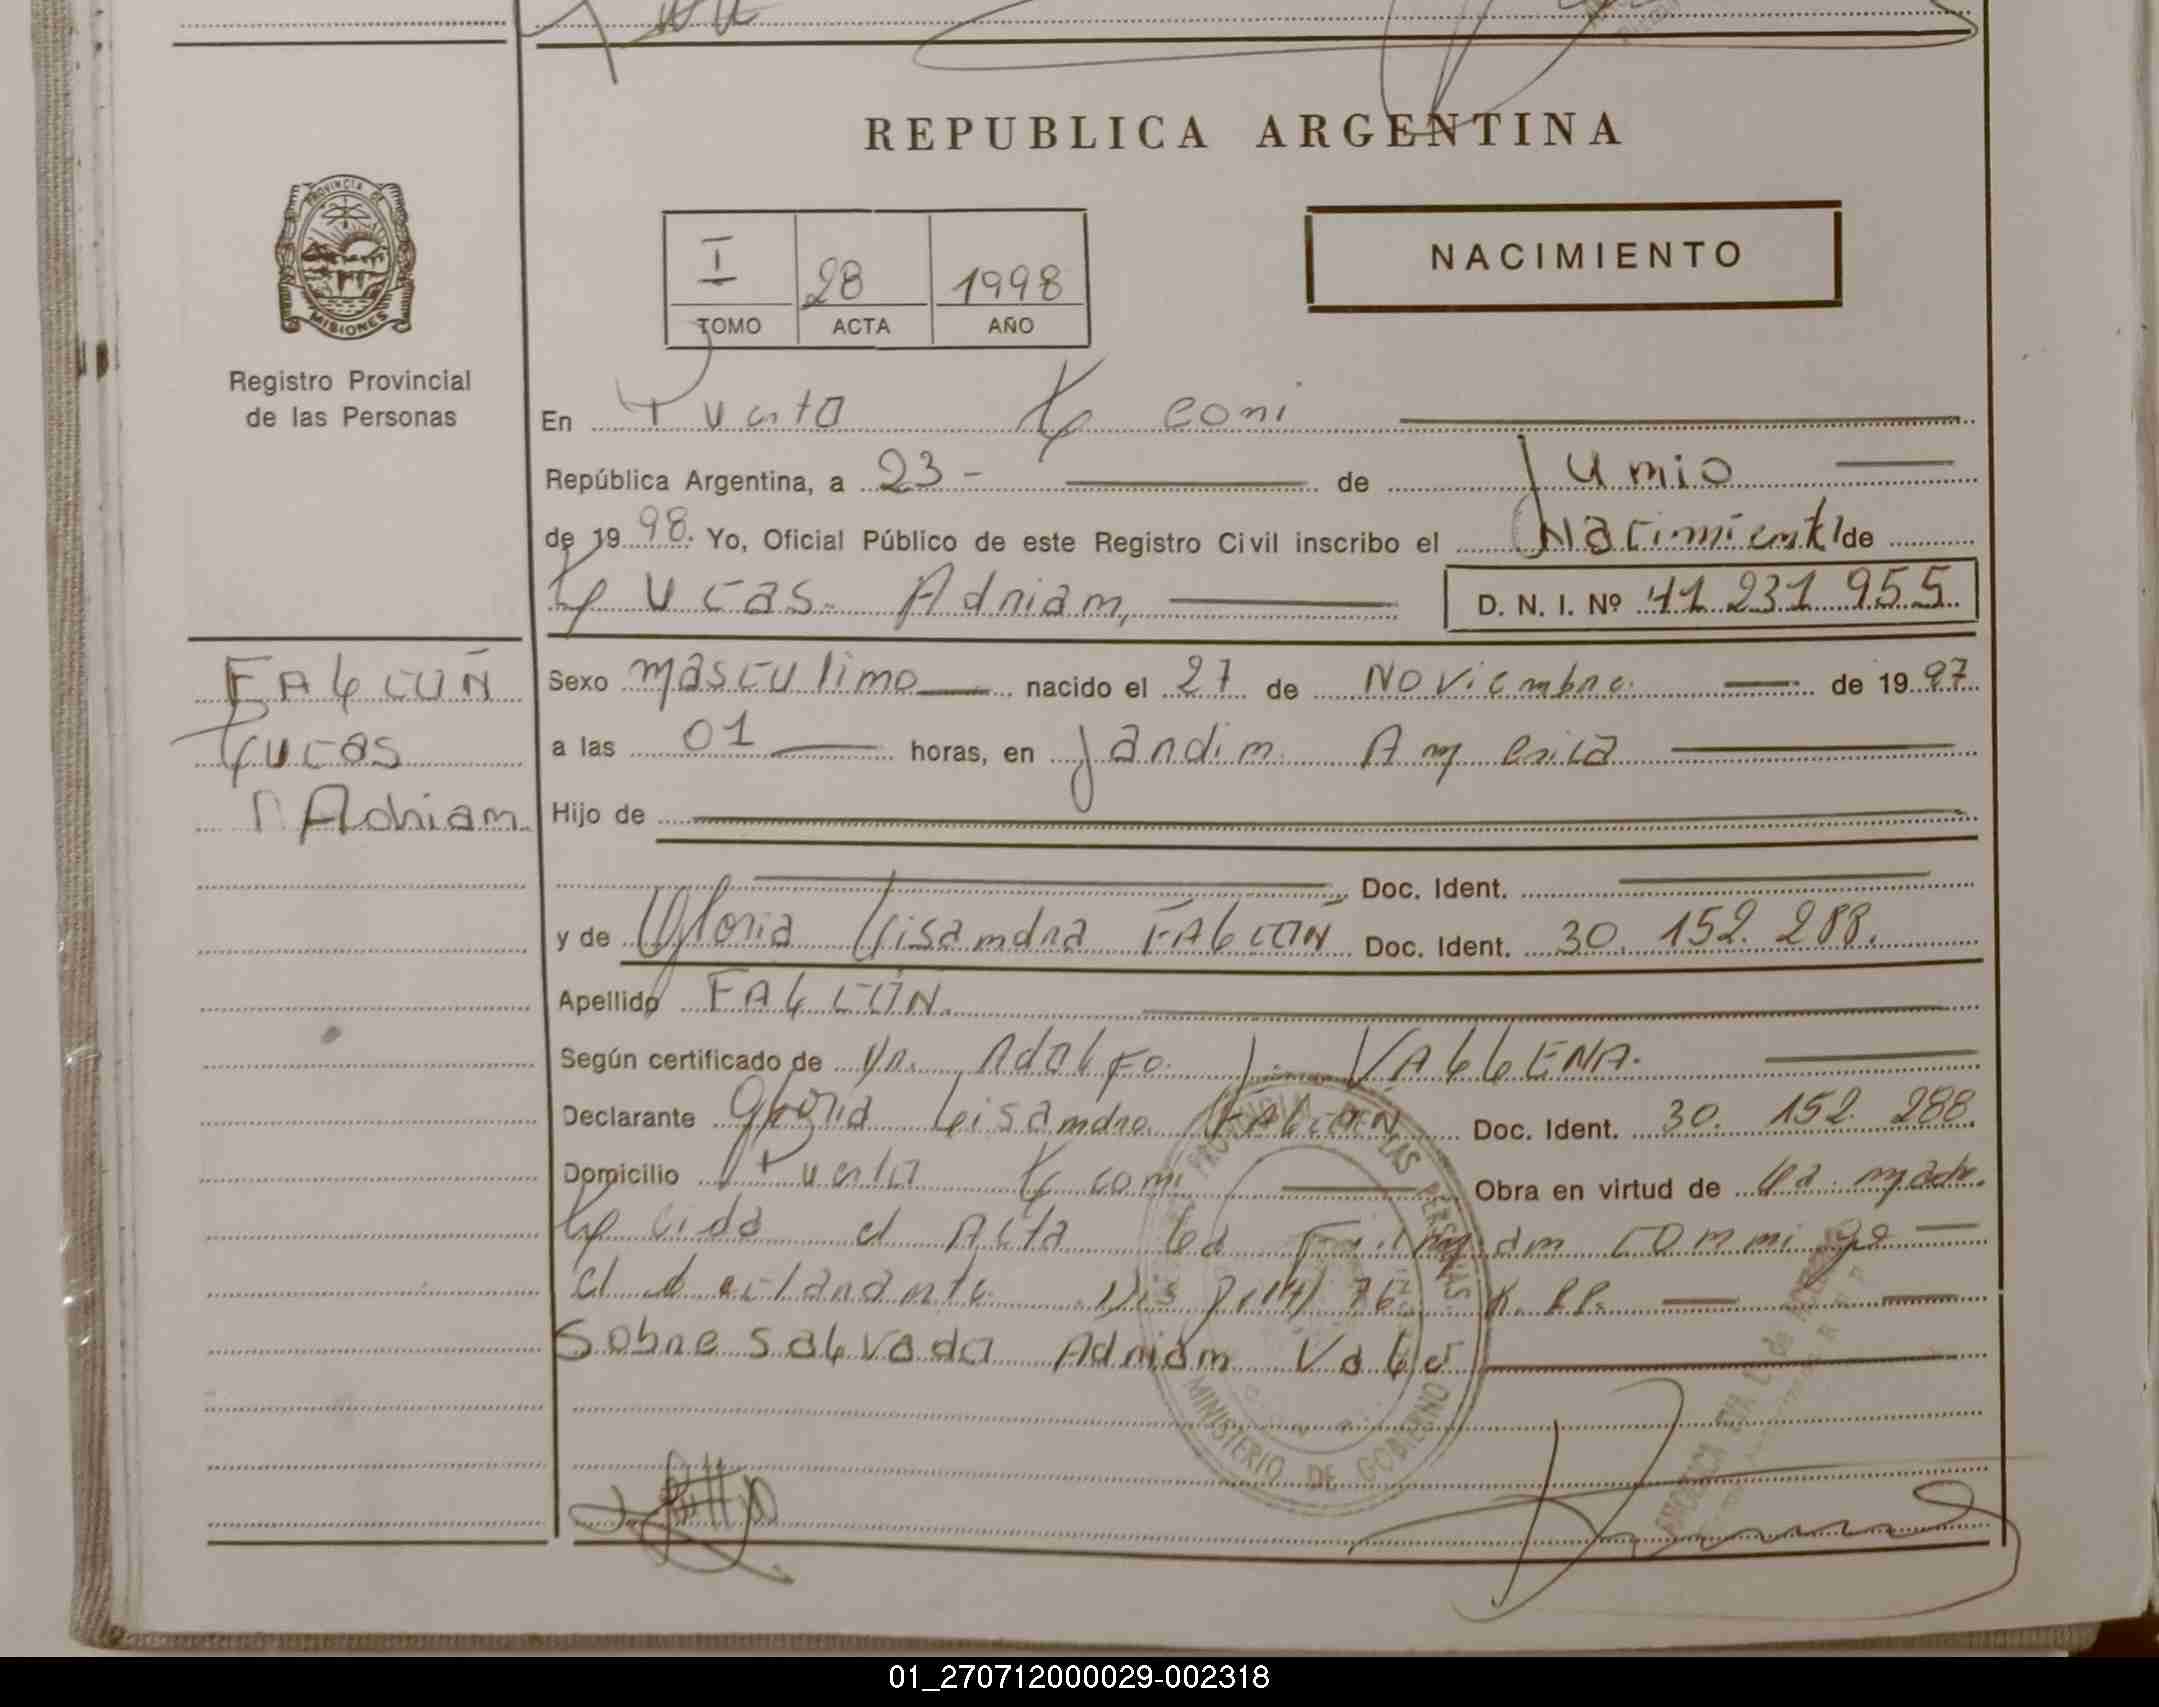 REPUBLICA ARGENTINA
PROVINCIA DE
MISIONES
Registro Provincial
de las Personas
I 28 1998
TOMO ACTA AÑO
NACIMIENTO
En Puerto Leoni
República Argentina, a 23 - de Junio
de 1998. Yo, Oficial Público de este Registro Civil inscribo el Nacimiento de
Lucas Adrian, D. N. I. Nº 41 231 955
FALCON
Lucas
Adrian
Sexo masculino nacido el 27 de Noviembre de 1997
a las 01 horas, en Jardin America
Hijo de
Doc. Ident.
y de Gloria Lisandra FALCON Doc. Ident. 30. 152. 288.
Apellido FALCON.
Según certificado de Dr. Adolfo J. VALLENA.
Declarante Gloria Lisandra FALCON Doc. Ident. 30. 152 288
Domicilio Puerto Leoni Obra en virtud de La madre.
Leida el Acta La Firman conmigo
el declarante Disp. 14/76 R.PP.
Sobre salvado Adrian Vale
MINISTERIO DE GOBIERNO
01_270712000029-002318